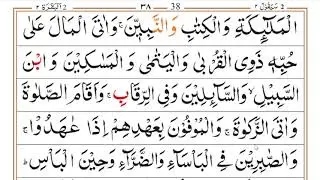 ٢ البقرة ٢ ٣٨ 38 سيقول ٢
الْمَلٰٓئِكَةِ وَالْكِتٰبِ وَالنَّبِيّٖنَ ۚ وَاٰتَى الْمَالَ عَلٰى
حُبِّهٖ ذَوِى الْقُرْبٰى وَالْيَتٰمٰى وَالْمَسٰكِيْنَ وَابْنَ
السَّبِيْلِ ۙ وَالسَّآئِلِيْنَ وَفِى الرِّقَابِ ۚ وَاَقَامَ الصَّلٰوةَ
وَاٰتَى الزَّكٰوةَ ۚ وَالْمُوْفُوْنَ بِعَهْدِهِمْ اِذَا عٰهَدُوْا ۚ
وَالصّٰبِرِيْنَ فِى الْبَاْسَآءِ وَالضَّرَّآءِ وَحِيْنَ الْبَاْسِ ؕ